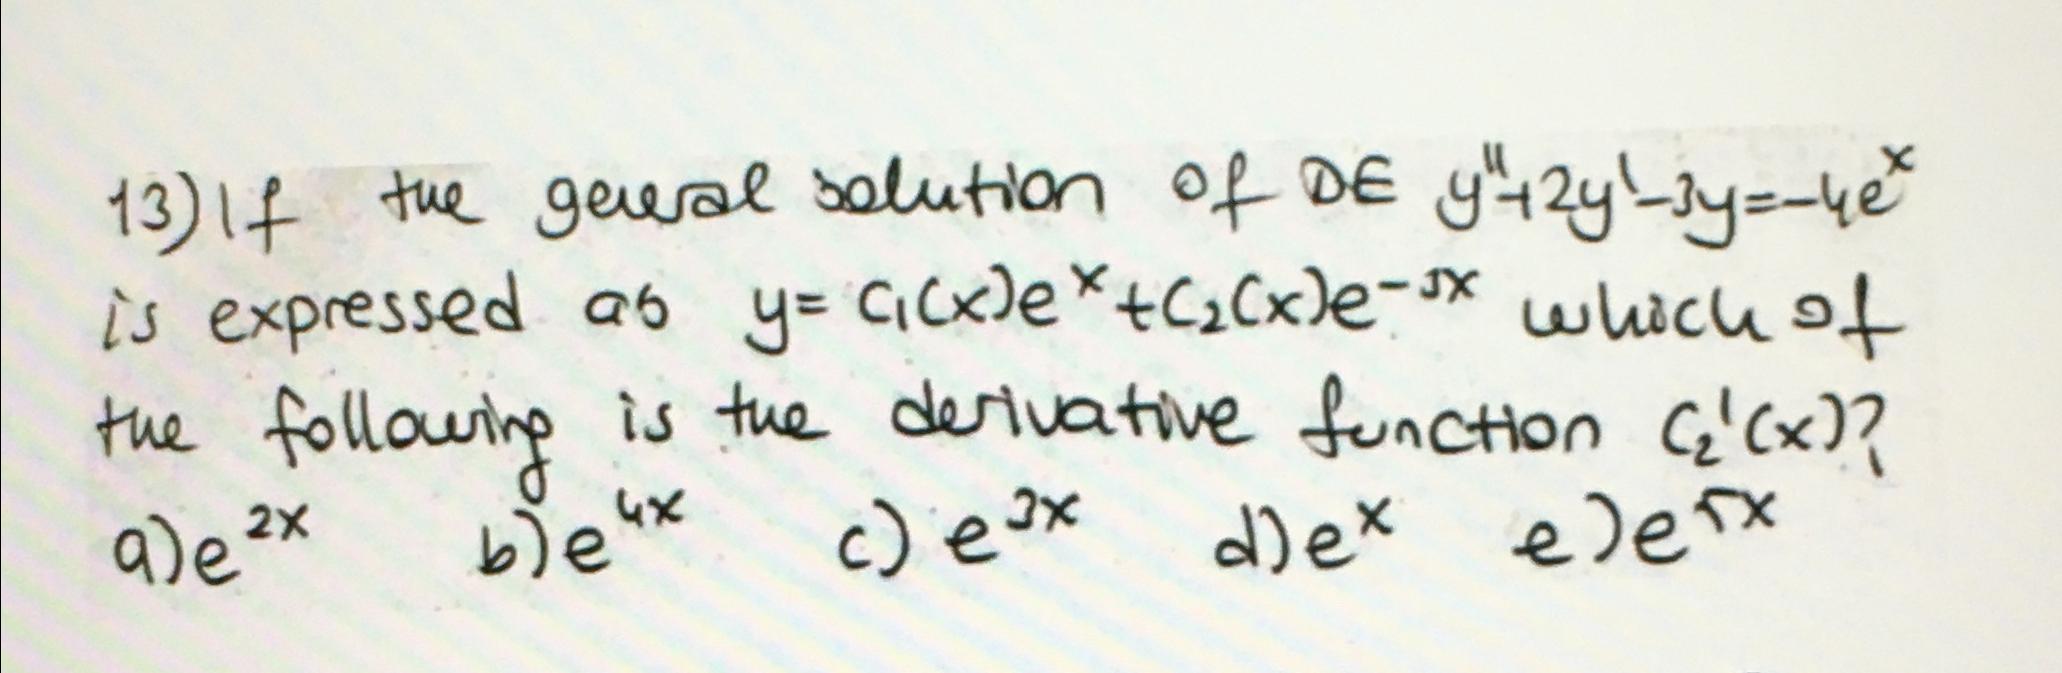 13) If the general solution of DE y''+2y'-3y=-4e^x
is expressed as y= C₁(x)e^x+C₂(x)e^-3x which of
the following is the derivative function C₂'(x)?
a) e^2x b) e^4x c) e^3x d) e^x e) e^5x